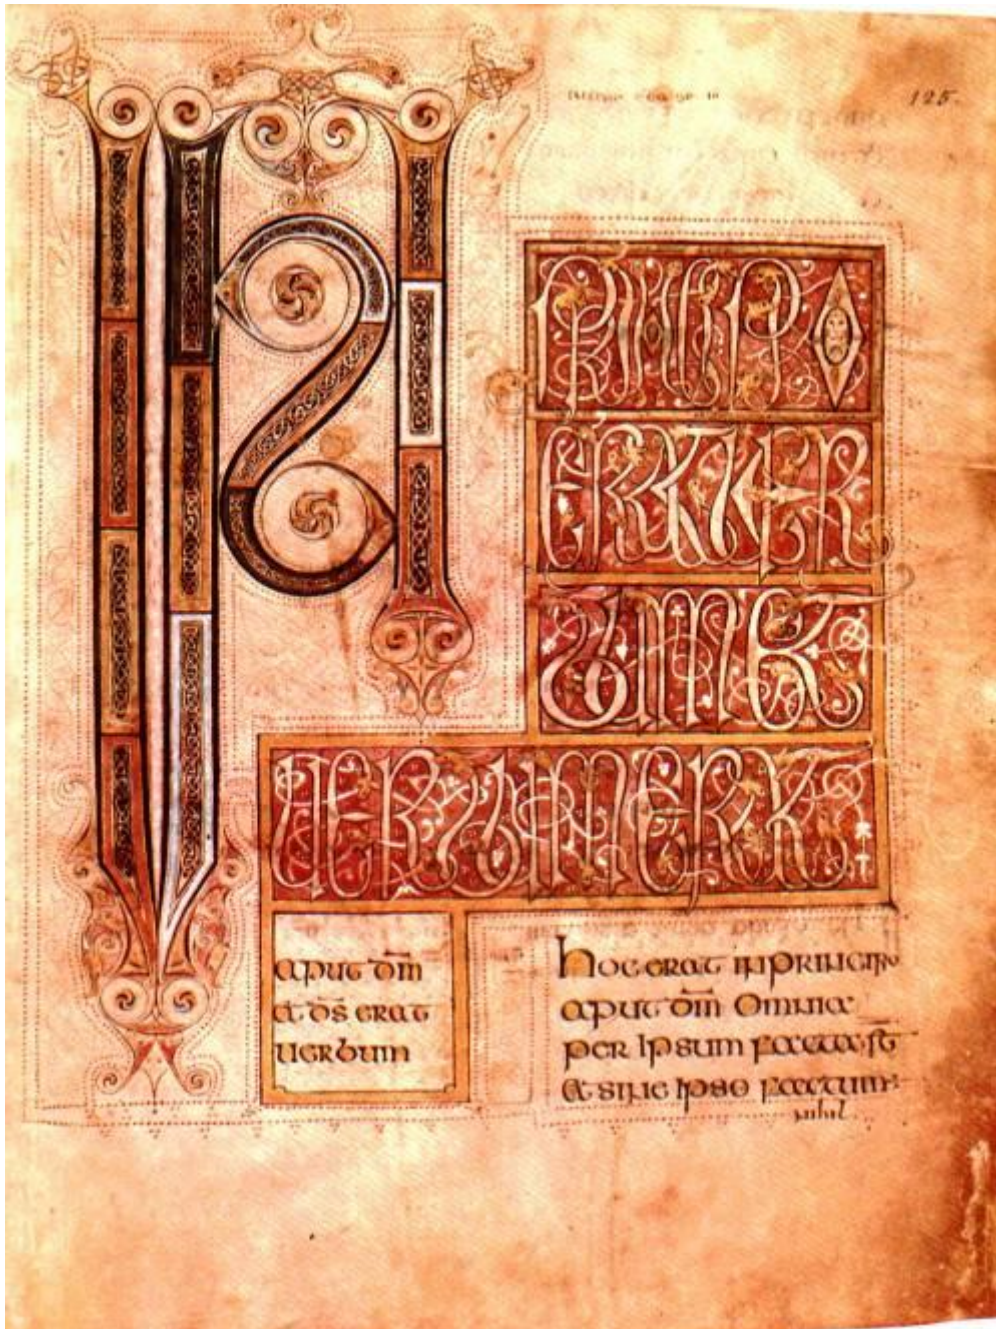 125.
IN
PRINCIPIO
ERAT UER
BUM ET
UERBUM ERAT
aput dm̄
et ds̄ erat
uerbum
hoc erat in principio
aput dm̄ omnia
per ipsum facta st̄
et sine ipso factum
nihil